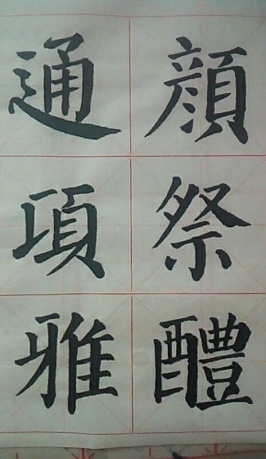 顔祭醴
通項雅